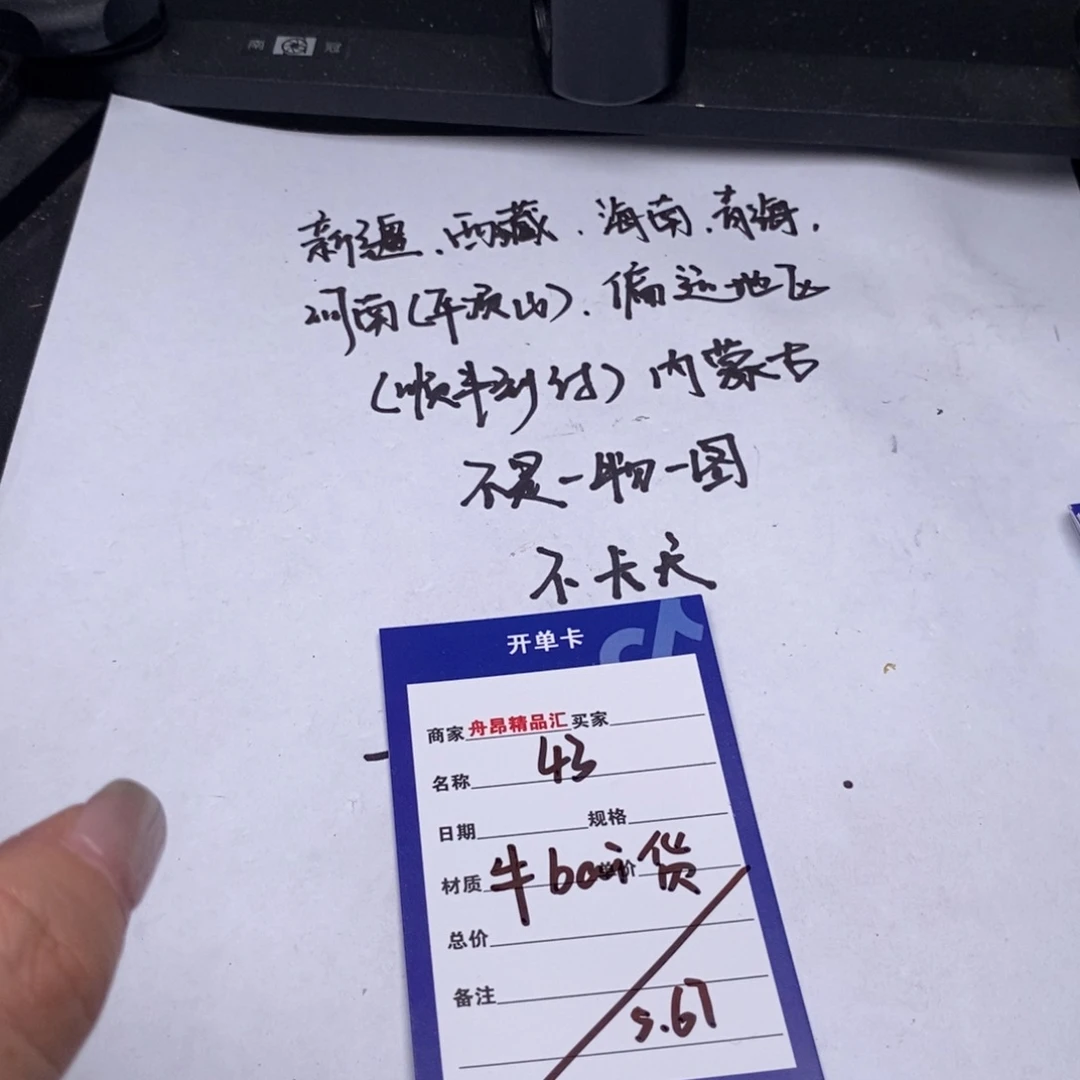 南冠
新疆、西藏、海南、青海、
河南(平顶山)、偏远地区
(顺丰到付)内蒙古
不是一物一图
不卡天
开单卡
商家 舟昂精品汇 买家
名称 43
日期 规格
材质 牛boi货 单价
总价
备注
5.67